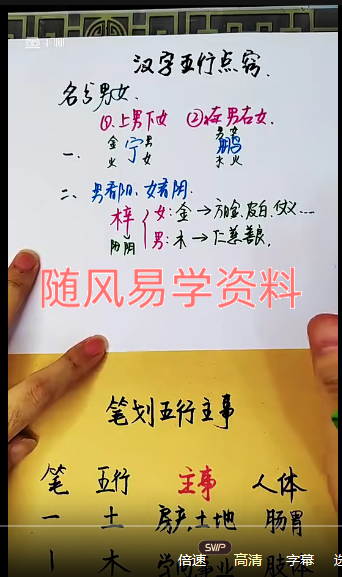 汉字五行点窍
名分男女.
①.上男下女 ②.左男右女.
一、 金 宁 男 男女 鹏
火 女 木火
二、男看阳.女看阴.
梓 女:金→方脸、皮白、仗义……
阳阴 男:木→仁慈善良.
随风易学资料
笔划五行主事
笔 五行 主事 人体
一 土 房产,土地 肠胃
SVIP
倍速 高清 字幕 选
丨 木 学 事业 肢体